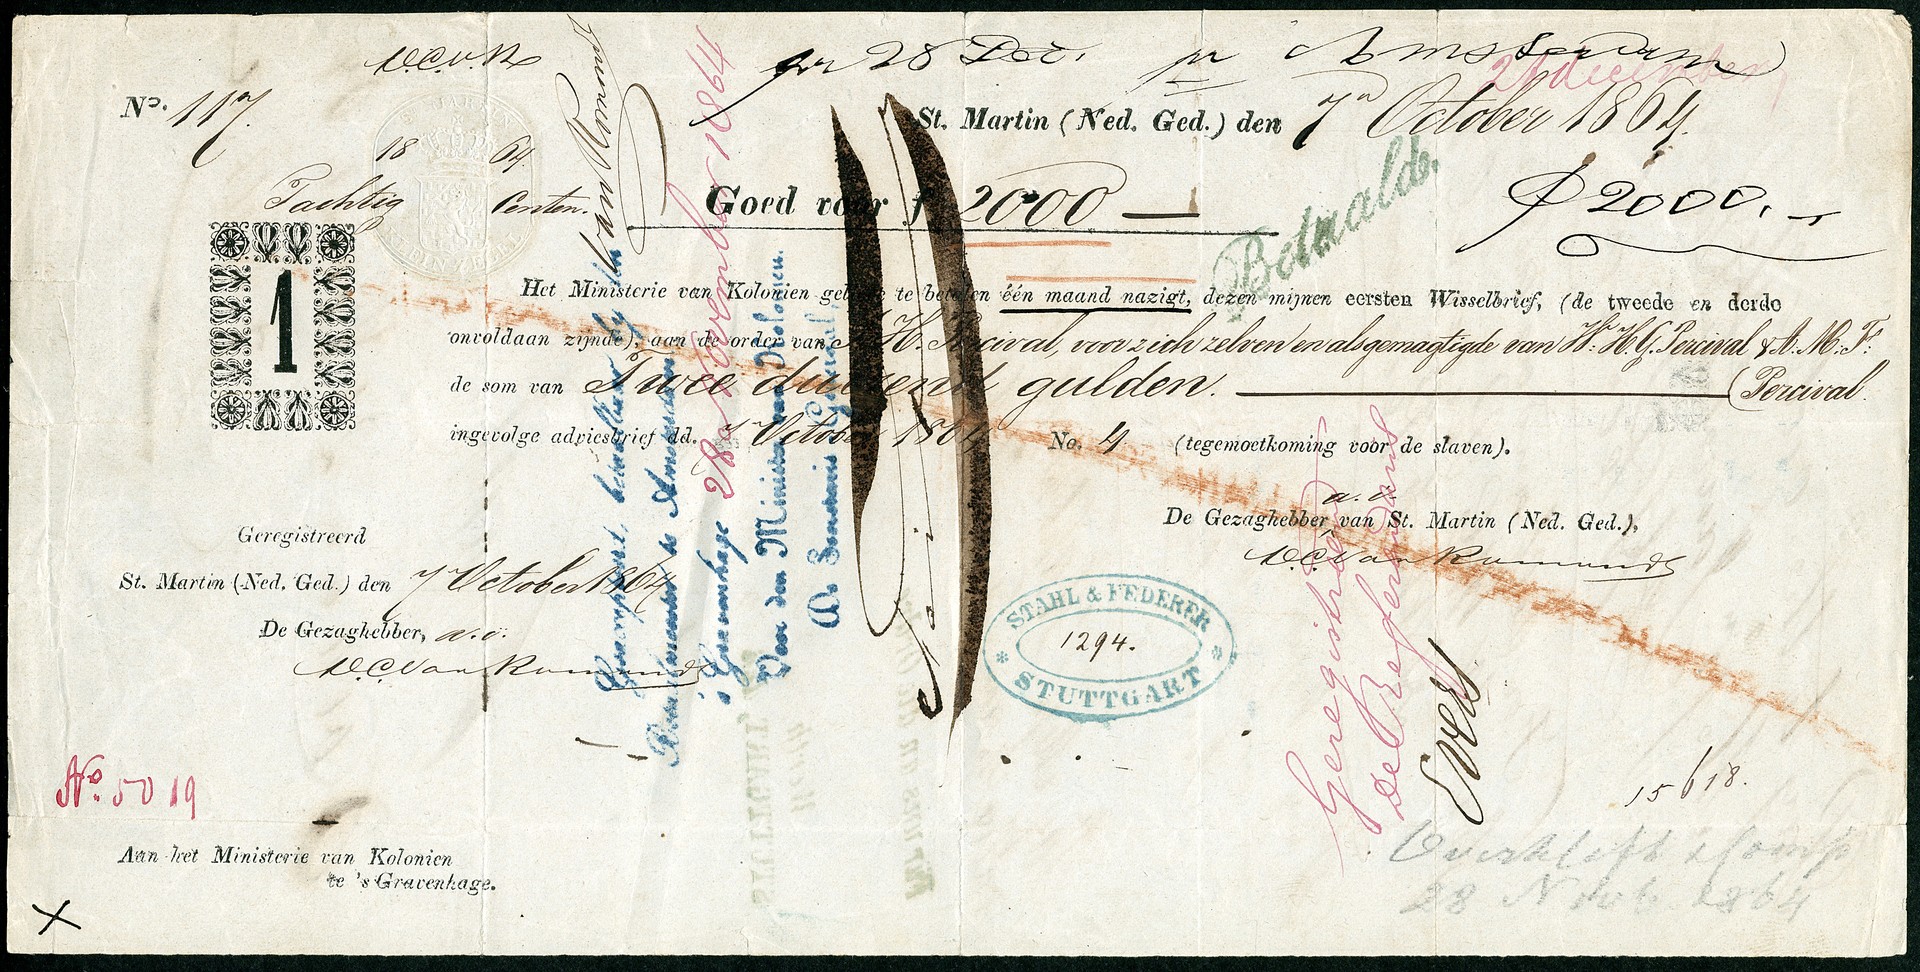 V.C.v.R
pr 28 Dec. pr Amsterdam
28 december
No. 117.
St. Martin (Ned. Ged.) den 7n October 1864.
18 64
Tachtig Centen.
Goed voor f 2000
f 2000.
Betaalde.
1
Het Ministerie van Kolonien gelieve te betalen één maand nazigt, dezen mijnen eersten Wisselbrief, (de tweede en derde
onvoldaan zijnde), aan de order van H. Percival, voor zich zelven en als gemagtigde van Wm. H. G. Percival & A. M. F.
de som van Twee duizend gulden. (Percival.
ingevolge adviesbrief dd. 7 October 1864 No. 4 (tegemoetkoming voor de slaven).
a.i.
De Gezaghebber van St. Martin (Ned. Ged.),
V.C. Van Romondt
Geregistreerd
St. Martin (Ned. Ged.) den 7 October 1864
De Gezaghebber, a.i.
V.C. Van Romondt
van Romondt
Geaccepteerd, betaalbaar bij den
te Amsterdam
's Gravenhage 28 November 1864
Voor den Minister van Kolonien.
De Secretaris Generaal,
STAHL & FEDERER
1294.
STUTTGART
Geregistreerd
De Referendaris
Evers
STUTTGART,
No. 5019
15618.
Aan het Ministerie van Kolonien
te 's Gravenhage.
28 Novb 1864
X